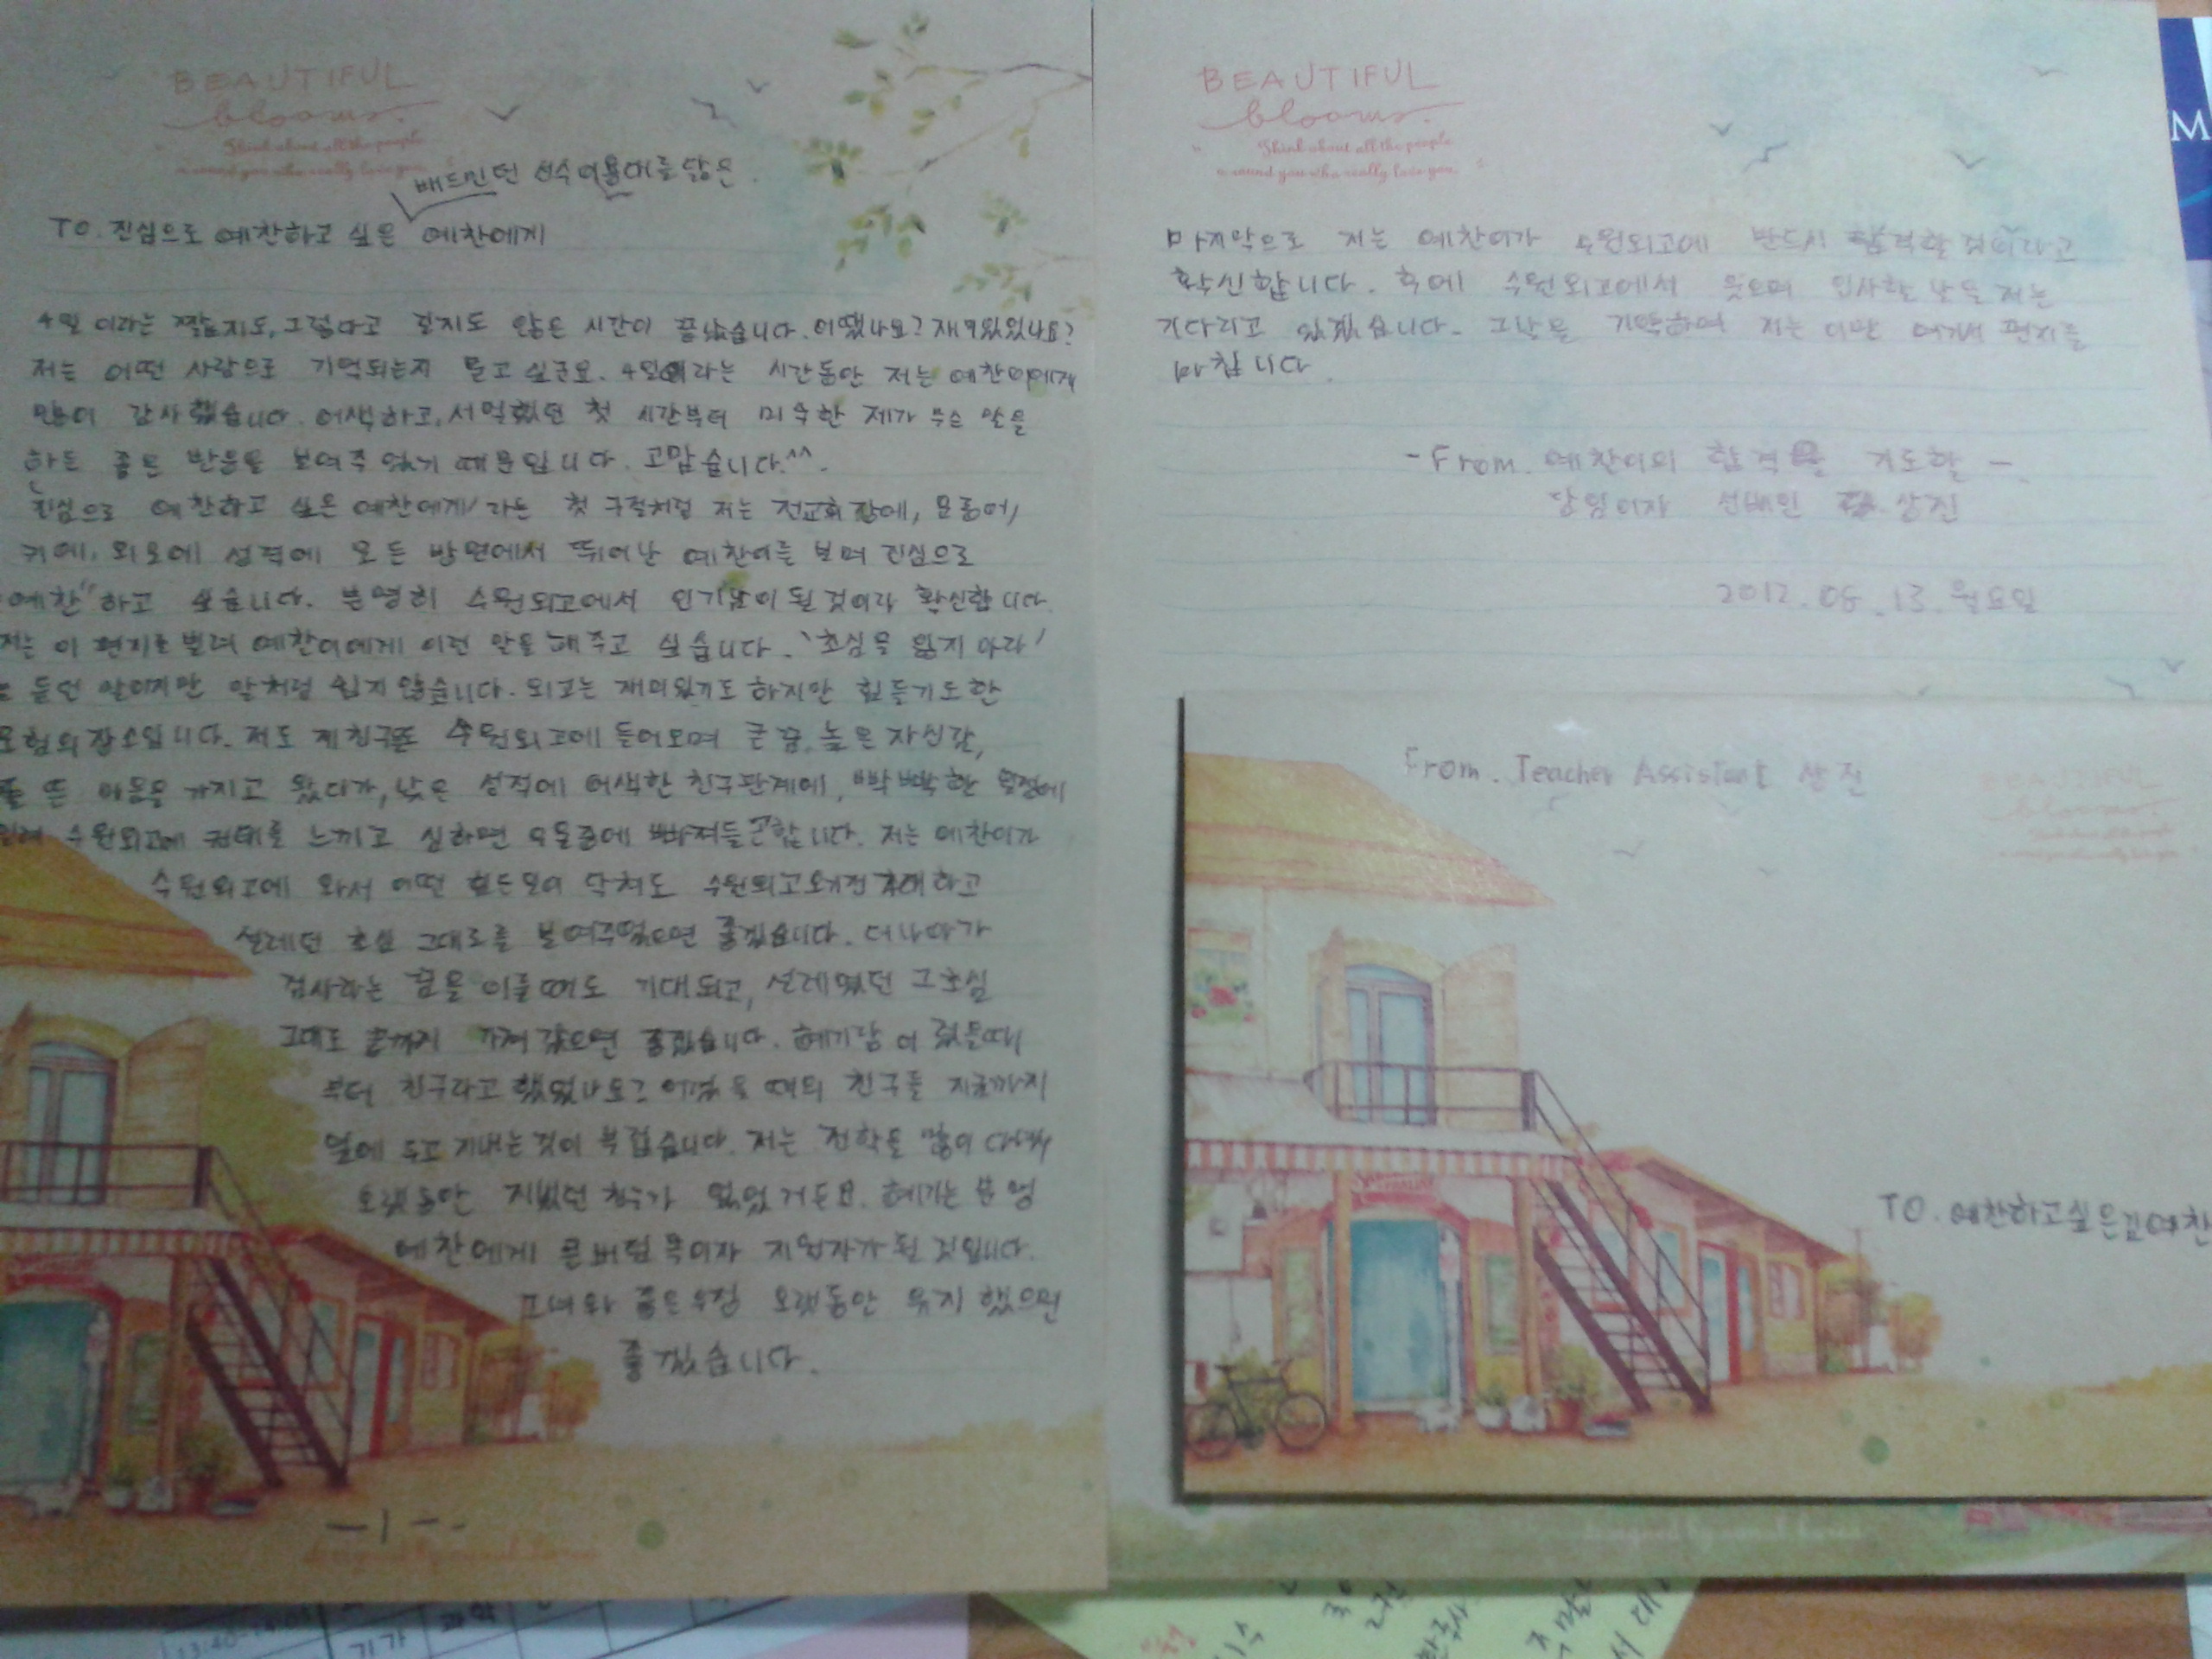 BEAUTIFUL
blooms.
Think about all the people
around you who really love you.
배드민턴 선수 이용대를 닮은
TO. 진심으로 예찬하고 싶은 예찬에게
4일 이라는 짧지도, 그렇다고 길지도 않은 시간이 끝났습니다. 어땠나요? 재미있었나요?
저는 어떤 사람으로 기억되는지 묻고 싶군요. 4일이라는 시간동안 저는 예찬이에게
많이 감사했습니다. 어색하고, 서먹했던 첫 시간부터 미숙한 제가 무슨 말을
하든 좋은 반응을 보여주었기 때문입니다. 고맙습니다.^^.
'진심으로 예찬하고 싶은 예찬에게'라는 첫 구절처럼 저는 전교회장에, 외모에 성격에 모든 방면에서 뛰어난 예찬이를 보며 진심으로
"예찬"하고 싶습니다. 분명히 수원외고에서 인기남이 될 것이라 확신합니다.
저는 이 편지를 빌려 예찬이에게 이런 말을 해주고 싶습니다. '초심을 잃지 마라'
듣던 말이지만 말처럼 쉽지 않습니다. 외고는 재미있기도 하지만 힘들기도한
모험의 장소입니다. 저도 제 친구들도 수원외고에 들어오며 큰 꿈, 높은 자신감,
들뜬 마음을 가지고 왔다가, 낮은 성적에 어색한 친구관계에, 빡빡한 일정에
수원외고에 권태를 느끼고 심하면 우울증에 빠져들곤합니다. 저는 예찬이가
수원외고에 와서 어떤 힘든일이 닥쳐도 수원외고오기전 기대하고
설레던 초심 그대로를 보여주었으면 좋겠습니다. 더나아가
검사라는 꿈을 이룰때도 기대되고, 설레였던 그초심
그대로 끝까지 가져갔으면 좋겠습니다. 혜기랑 어렸을때
부터 친구라고 했었나요? 어렸을 때의 친구를 지금까지
옆에 두고 지내는것이 부럽습니다. 저는 전학을 많이 다녀서
오랫동안 지냈던 친구가 없었거든요. 혜기는 분명
예찬에게 큰버팀목이자 지원자가 될 것입니다.
그녀와 좋은우정 오랫동안 유지했으면
좋겠습니다.
-1-
BEAUTIFUL
blooms.
Think about all the people
around you who really love you.
마지막으로 저는 예찬이가 수원외고에 반드시 합격할 것이라고
확신합니다. 후에 수원외고에서 웃으며 인사할 날을 저는
기다리고 있겠습니다. 그날을 기약하며 저는 이만 여기서 편지를
마칩니다.
-From. 예찬이의 합격을 기도할-
담임이자 선배인 상진
2012.08.13.월요일
From. Teacher Assistant 상진
BEAUTIFUL
blooms.
TO. 예찬하고싶은김예찬
13:40-14:05
기가
과학